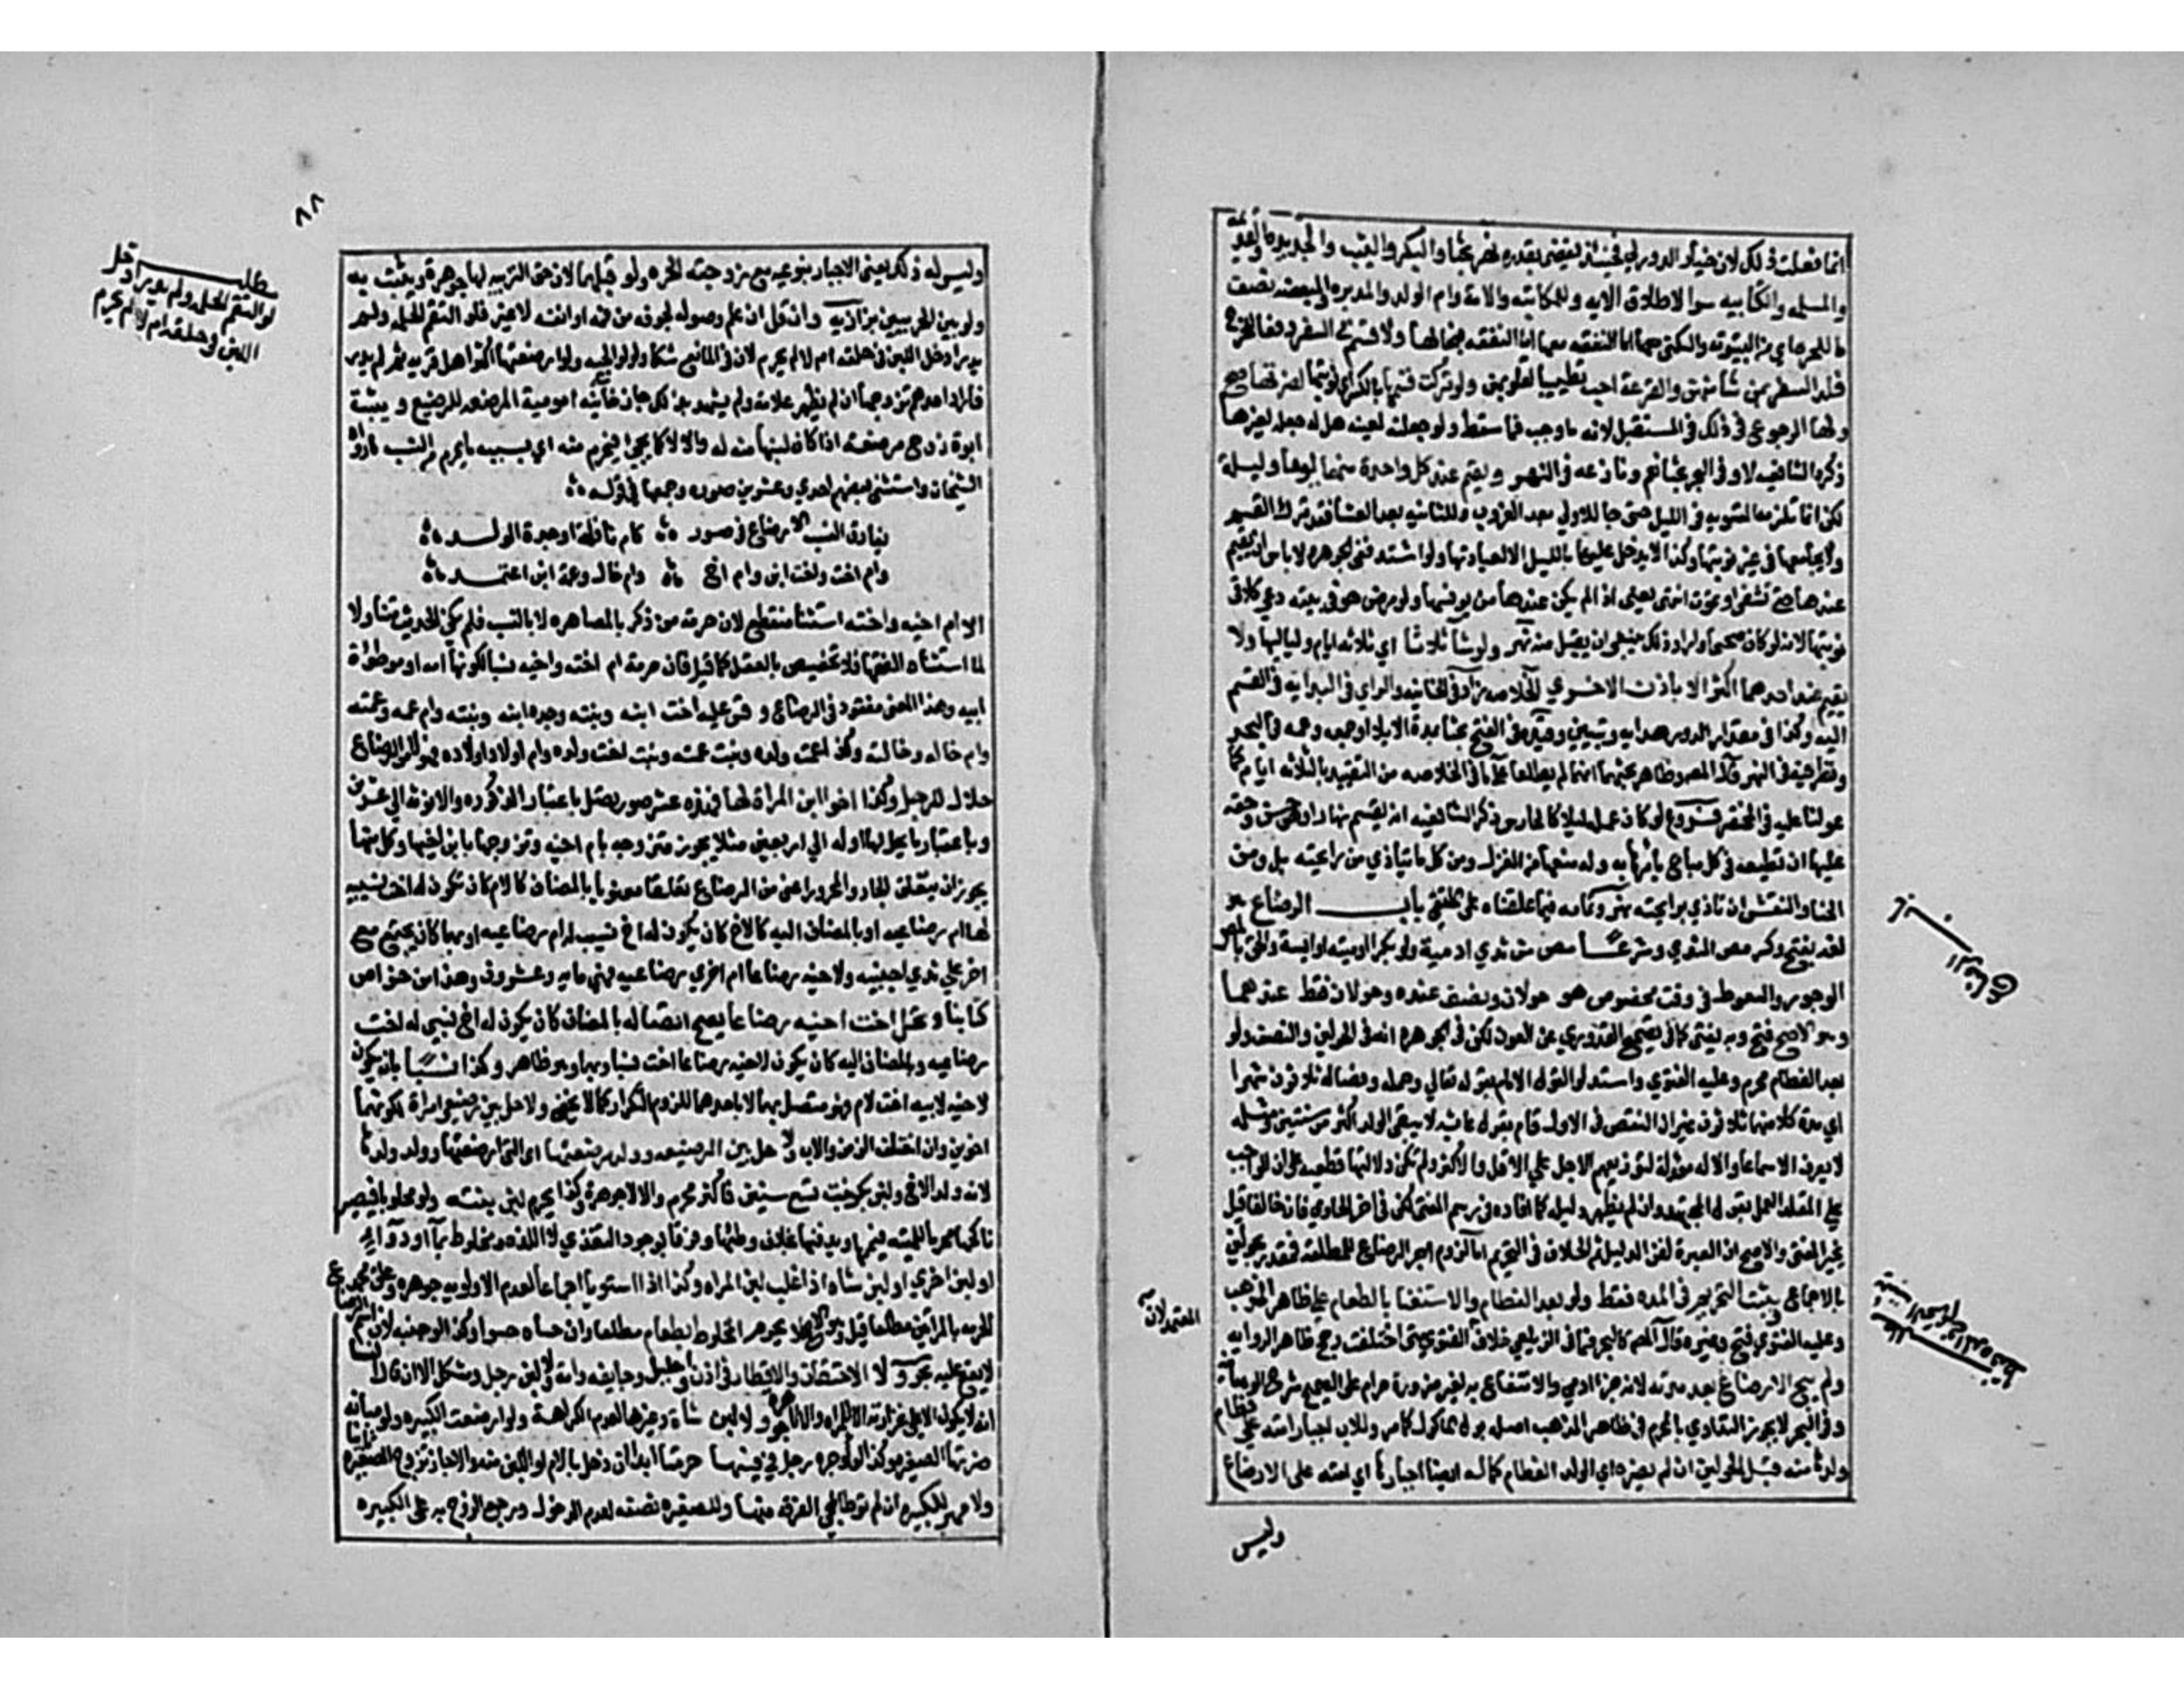 انما فعلت ذلك لان
والمسلمه والكتابيه سوا لاطلاق الايه وللامة والمكاتبه وام الولد والمدبره والمبعضه نصف
ما للحره اي من البيتوته والسكنى معها اما النفقه فبحالهما ولا قسم في السفر دفعا للحرج
فله السفر بمن شا منهن والقرعة احب تطييبا لقلوبهن ولو تركت قسمها بالكسر اي نوبتها لضرتها صح
ولها الرجوع في ذلك في المستقبل لانه ما وجب فما سقط ولو جعلته لمعينه هل له جعله لغيرها
ذكر الشافعيه لا وفي البحر بحثا نعم ونازعه في النهر ويقيم عند كل واحدة منهما يوما وليلة
لكن انما تلزمه التسويه في الليل حتى لو جا للاولى بعد الغروب وللثانيه بعد العشا فقد ترك القسم
ولا يجامعها في غير نوبتها وكذا لا يدخل عليها بالليل الا لعيادتها ولو اشتد ففي الجوهره لا باس ان يقيم
عندها حتى تشفى او تموت انتهى يعني اذا لم يكن عندها من يونسها ولو مرض هو في بيته دعى كلا في
نوبتها لانه لو كان صحيحا واراد ذلك ينبغي ان يقبل منه نهر ولو شا ثلاثا اي ثلاثه ايام ولياليها ولا
يقيم عند احدهما اكثر الا باذن الاخرى خلاصه زاد في الخانيه والراي في البدايه في القسم
اليه وكذا في مقدار الدور هدايه وتبيين وقيده في الفتح بحثا بمدة الايلا او جمعه وعممه في البحر
ونظر فيه في النهر قال المص وظاهر بحثهما انهما لم يطلعا على ما في الخلاصه من التقييد بالثلاثه ايام كما
عولنا عليه في المختصر فروع لو كان عمله ليلا كالحارس ذكر الشافعيه انه يقسم نهارا وهو حسن وحقه
عليها ان تطيعه في كل مباح يامرها به وله منعها من الغزل ومن كل ما يتاذى من رائحته بل ومن
الحنا والنقش ان تاذى برايحته نهر وتمامه فيما علقناه على الملتقى باب الرضاع هو
لغه بفتح وكسر مص الثدي وشرعا مص من ثدي ادمية ولو بكرا او ميته او ايسة والحق بالمص
الوجور والسعوط في وقت مخصوص هو حولان ونصف عنده وحولان فقط عندهما
وهو الاصح فتح وبه يفتى كما في تصحيح القدوري عن العون لكن في الجوهره انه في الحولين والنصف ولو
بعد الفطام محرم وعليه الفتوى واستدلوا لقول الامام بقوله تعالى وحمله وفصاله ثلاثون شهرا
اي مدة كل منهما ثلاثون غير ان النقص في الاول قام بقول عائشه لا يبقى الولد اكثر من سنتين ومثله
لا يعرف الا سماعا والايه مؤولة لتوزيعهم الاجل على الاقل والاكثر ولم تكن دلالتها قطعيه على ان الواجب
على المقلد العمل بقول المجتهد وان لم يظهر دليله كما افاده في رسم المفتي لكن في اخر الحاوي فان خالفا قيل
يخير المفتي والاصح ان العبرة لقوة الدليل ثم الخلاف في التحريم اما لزوم اجر الرضاع للمطلقه فمقدر بحولين
بالاجماع ويثبت التحريم في المده فقط ولو بعد الفطام والاستغنا بالطعام على ظاهر المذهب
وعليه الفتوى فتح وغيره قال المص كالبحر فما في الزيلعي خلاف المعتمد لان الفتوى متى اختلفت رجح ظاهر الروايه
ولم يبح الارضاع بعد مدته لانه جزا ادمي والانتفاع به لغير ضرورة حرام على الصحيح شرح الوهبانيه
وفي البحر لا يجوز التداوي بالمحرم في ظاهر المذهب اصله بول الماكول كما مر وللاب اجبار امته على فطام
ولدها منه قبل الحولين ان لم يضره اي الولد الفطام كما له ايضا اجبارها اي امته على الارضاع
وليس
المعتمد لان
وليس له ذلك يعني الاجبار بنوعيه مع زوجته الحره ولو قبلهما لان حق التربيه لها جوهرة ويثبت به
ولو بين الحربيين بزازيه وان قل ان علم وصوله لجوفه من فمه او انفه لا غير فلو التقم الحلمه ولم
يدر ادخل اللبن في حلقه ام لا لم يحرم لان في المانع شكا ولوالجيه ولو ارضعتها اكثر اهل قريه ثم لم يدر
فاراد احدهم تزوجها ان لم تظهر علامه ولم يشهد بذلك جاز خانيه امومية المرضعه للرضيع ويثبت
ابوة زوج مرضعه اذا كان لبنها منه له والا لا كما يجي فيحرم منه اي بسببه ما يحرم من النسب رواه
الشيخان واستثنى بعضهم احدى وعشرين صوره وجمعها في قوله
يفارق النسب الارضاع في صور كام نافلة او جدة الولد
وام اخت واخت ابن وام اخ وام خال وعمة ابن اعتمد
الا ام اخيه واخته استثنا منقطع لان حرمة من ذكر بالمصاهره لا بالنسب فلم يكن الحديث متناولا
لما استثناه الفقها فلا تخصيص بالعقل كما قيل فان حرمة ام اخته واخيه نسبا لكونها امه او موطؤة
ابيه وهذا المعنى مفقود في الرضاع وقس عليه اخت ابنه وبنته وجدة ابنه وبنته وام عمه وعمته
وام خاله وخالته وكذا عمت ولده وبنت عمته وبنت اخت ولده وام اولاد اولاده فهولا من الرضاع
حلال للرجل وكذا اخو ابن المراة لها فهذه عشر صور تصل باعتبار الذكوره والانوثه الى عشرين
وباعتبار ما يحل لها او له الى اربعين مثلا يجوز تزوجه بام اخيه وتزوجها بابي اخيها وكل منها
يجوز ان يتعلق الجار والمجرور اعني من الرضاع تعلقا معنويا بالمضاف كالام كان تكون له اخت نسبيه
لها ام رضاعيه او بالمضاف اليه كالاخ كان يكون له اخ نسبي له ام رضاعيه او بهما كان يجتمع مع
اخر على ثدي اجنبيه ولاخيه رضاعا ام اخرى رضاعيه فهي مايه وعشرون وهذا من خواص
كتابنا وتحل اخت اخيه رضاعا يصح اتصاله بالمضاف كان يكون له اخ نسبي له اخت
رضاعيه وبالمضاف اليه كان يكون لاخيه رضاعا اخت نسبا وبهما وهو ظاهر وكذا نسبا بان يكون
لاخيه لابيه اخت لام فهو متصل بهما لا باحدهما للزوم التكرار كما لا يخفى ولا حل بين رضيعي امراة لكونهما
اخوين وان اختلف الزمن والاب ولا حل بين الرضيعه وولد مرضعتها اي التي ارضعتها وولد ولدها
لانه ولد الاخ ولبن بكر بنت تسع سنين فاكثر محرم والا لا جوهرة وكذا يحرم لبن ميته ولو محلوبا فيصير
ناكحها محرما للميته فييممها ويدفنها بخلاف وطئها وفرق بوجود التغذي لا اللذه ومخلوط بما او دوا
او لبن اخرى او لبن شاه اذا غلب لبن المراه وكذا اذا استويا اجماعا لعدم الاولويه جوهره وعلق محمد
الحرمه بالمراتين مطلقا قيل وهو الاصح لا يحرم المخلوط بطعام مطلقا وان حساه حسوا وكذا لو جبنه لان اسم الرضاع
لا يقع عليه بحر ولا الاحتقان والاقطار في اذن واحليل وجايفه وامه ولا لبن رجل ومشكل الا اذا قال النسا
انه لا يكون على غزارته الا للمراه والا لا جوهره ولا لبن شاة وغيرها لعدم الكرامة ولو ارضعت الكبيره ولو مبانه
ضرتها الصغيره وكذا لو اوجره رجل في فيها حرمتا ابدا ان دخل بالام او اللبن منه والا جاز تزوج الصغيره ثانيا
ولا مهر للكبيره ان لم توطا لمجي الفرقه منها وللصغيره نصفه لعدم الدخول ورجع الزوج به على الكبيره
٨٨
مطلب
لو التقم الحلمه ولم يدر ادخل
اللبن في حلقه ام لا لم يحرم